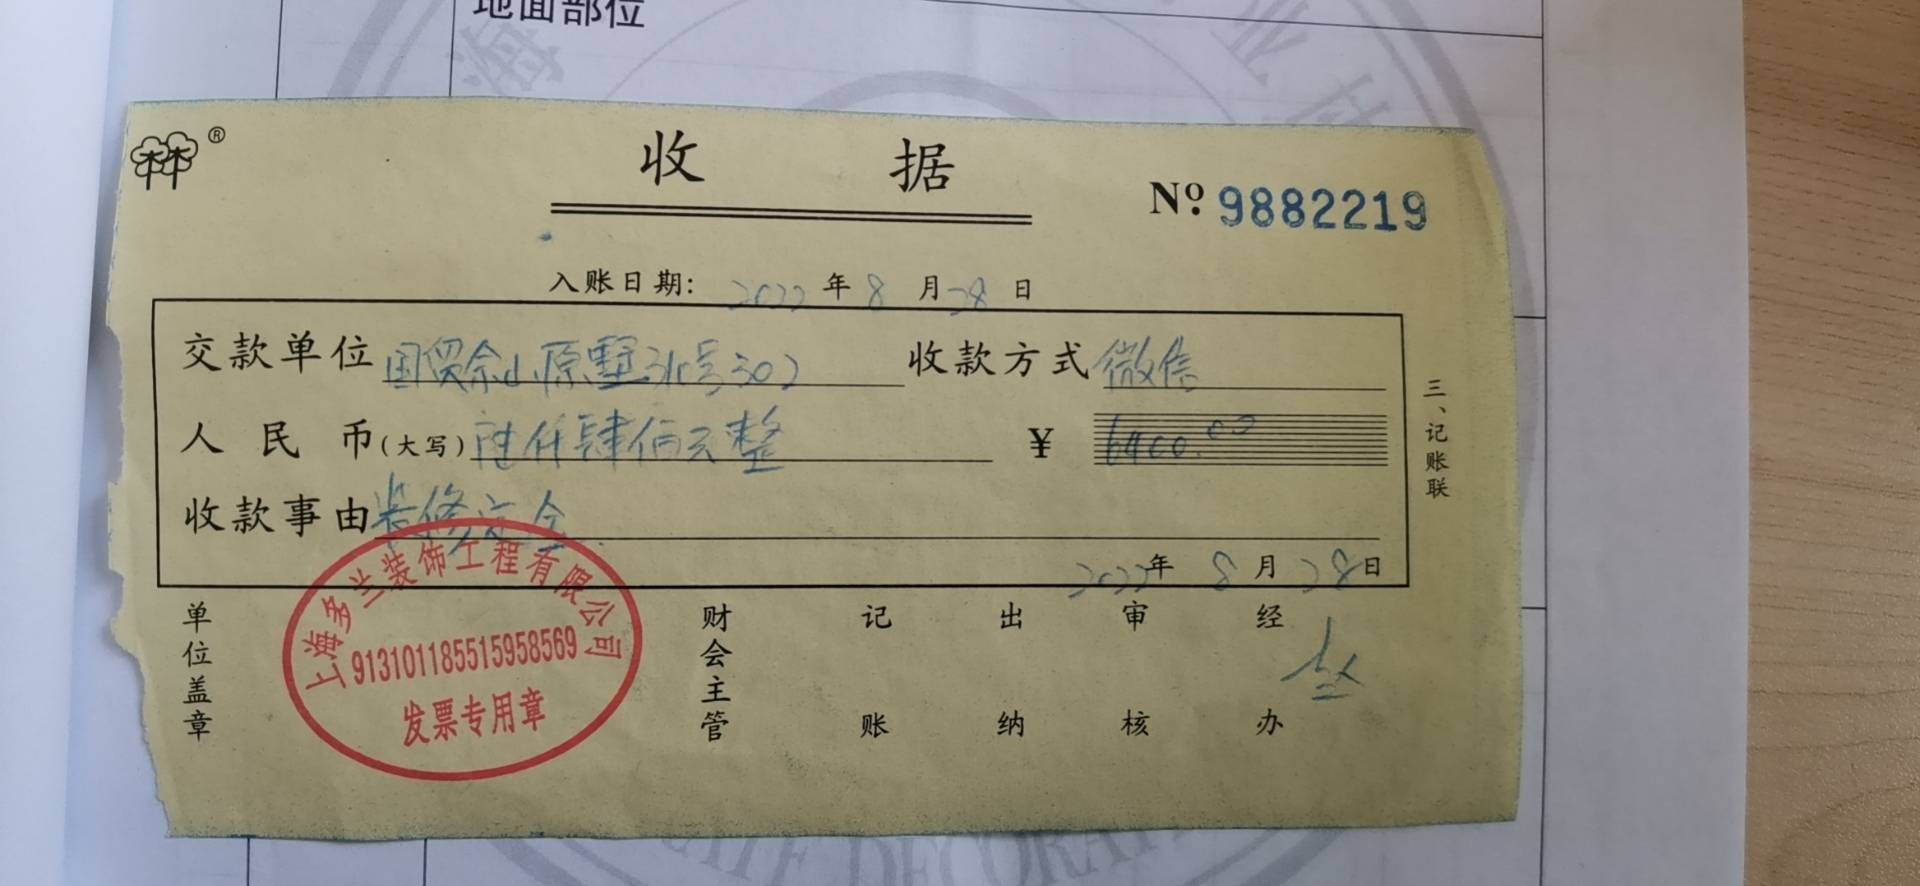 地面部位
海
业
®
收 据
Nº 9882219
入账日期: 2022 年 8 月 28 日
交款单位 国贸佘山原墅31号302 收款方式 微信
人民币(大写) 陆仟肆佰元整 ¥ 6400.00
收款事由 装修定金
2022年 8月 28日
三、记账联
单位盖章 财会主管 记账 出纳 审核 经办
上海多兰装饰工程有限公司
913101185515958569
发票专用章